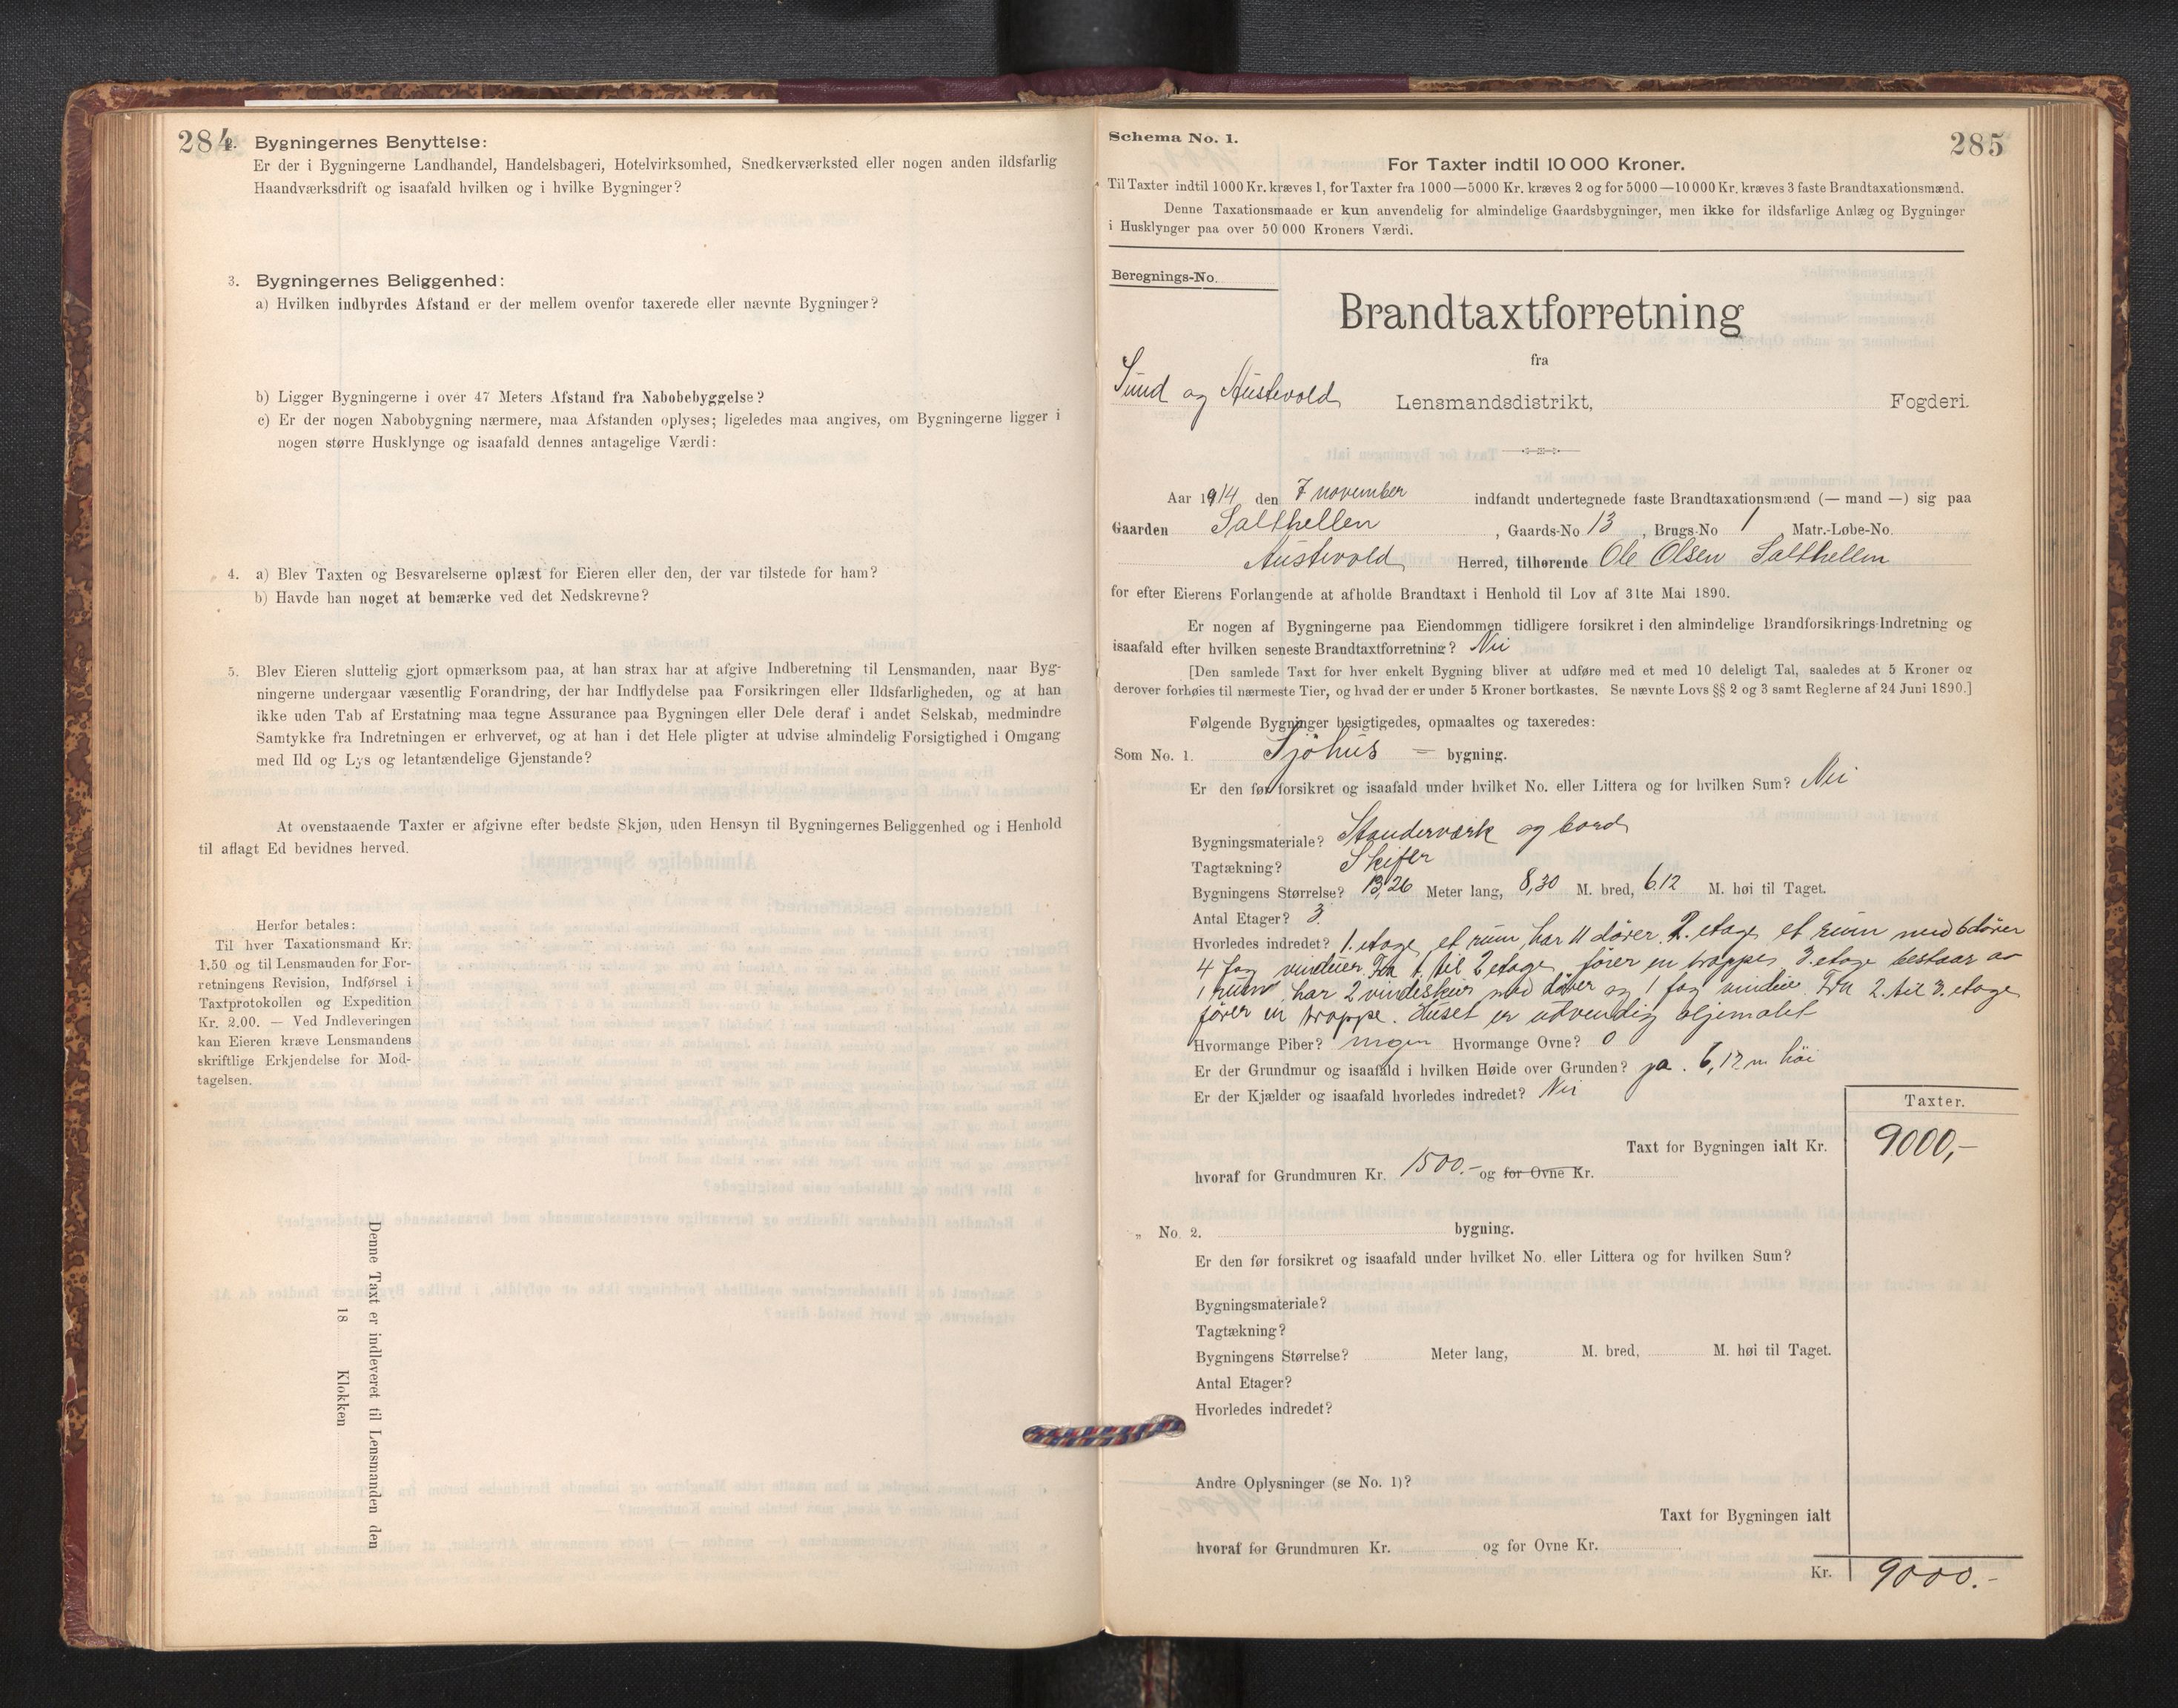 284
2. Bygningernes Benyttelse:
Er der i Bygningerne Landhandel, Handelsbageri, Hotelvirksomhed, Snedkerværksted eller nogen anden ildsfarlig
Haandværksdrift og isaafald hvilken og i hvilke Bygninger?
3. Bygningernes Beliggenhed:
a) Hvilken indbyrdes Afstand er der mellem ovenfor taxerede eller nævnte Bygninger?
b) Ligger Bygningerne i over 47 Meters Afstand fra Nabobebyggelse?
c) Er der nogen Nabobygning nærmere, maa Afstanden oplyses; ligeledes maa angives, om Bygningerne ligger i
nogen større Husklynge og isaafald dennes antagelige Værdi:
4. a) Blev Taxten og Besvarelserne oplæst for Eieren eller den, der var tilstede for ham?
b) Havde han noget at bemærke ved det Nedskrevne?
5. Blev Eieren sluttelig gjort opmærksom paa, at han strax har at afgive Indberetning til Lensmanden, naar Byg-
ningerne undergaar væsentlig Forandring, der har Indflydelse paa Forsikringen eller Ildsfarligheden, og at han
ikke uden Tab af Erstatning maa tegne Assurance paa Bygningen eller Dele deraf i andet Selskab, medmindre
Samtykke fra Indretningen er erhvervet, og at han i det Hele pligter at udvise almindelig Forsigtighed i Omgang
med Ild og Lys og letantændelige Gjenstande?
At ovenstaaende Taxter er afgivne efter bedste Skjøn, uden Hensyn til Bygningernes Beliggenhed og i Henhold
til aflagt Ed bevidnes herved.
Herfor betales:
Til hver Taxationsmand Kr.
1.50 og til Lensmanden for For-
retningens Revision, Indførsel i
Taxtprotokollen og Expedition
Kr. 2.00. — Ved Indleveringen
kan Eieren kræve Lensmandens
skriftlige Erkjendelse for Mod-
tagelsen.
Denne Taxt er indleveret til Lensmanden den
18 Klokken
285
Schema No. 1.
For Taxter indtil 10 000 Kroner.
Til Taxter indtil 1000 Kr. kræves 1, for Taxter fra 1000—5000 Kr. kræves 2 og for 5000—10 000 Kr. kræves 3 faste Brandtaxationsmænd.
Denne Taxationsmaade er kun anvendelig for almindelige Gaardsbygninger, men ikke for ildsfarlige Anlæg og Bygninger
i Husklynger paa over 50 000 Kroners Værdi.
Beregnings-No.
Brandtaxtforretning
fra
Sund og Austevold Lensmandsdistrikt, Fogderi.
Aar 1914 den 7 november indfandt undertegnede faste Brandtaxationsmænd (— mand —) sig paa
Gaarden Salthellen, Gaards-No 13, Brugs-No 1 Matr.-Løbe-No.
Austevold Herred, tilhørende Ole Olsen Salthellen
for efter Eierens Forlangende at afholde Brandtaxt i Henhold til Lov af 31te Mai 1890.
Er nogen af Bygningerne paa Eiendommen tidligere forsikret i den almindelige Brandforsikrings-Indretning og
isaafald efter hvilken seneste Brandtaxtforretning? Nei
[Den samlede Taxt for hver enkelt Bygning bliver at udføre med et med 10 deleligt Tal, saaledes at 5 Kroner og
derover forhøies til nærmeste Tier, og hvad der er under 5 Kroner bortkastes. Se nævnte Lovs §§ 2 og 3 samt Reglerne af 24 Juni 1890.]
Følgende Bygninger besigtigedes, opmaaltes og taxeredes:
Som No. 1. Sjøhus = bygning.
Er den før forsikret og isaafald under hvilket No. eller Littera og for hvilken Sum? Nei
Bygningsmateriale? Standerværk og bord
Tagtækning? Skifer
Bygningens Størrelse? 13,26 Meter lang, 8,30 M. bred, 6.12 M. høi til Taget.
Antal Etager? 3
Hvorledes indredet? 1. etage, et rum, har 4 dører. 2. etage et rum med 6 dører
4 fag vinduer. Fra 1. til 2 etage fører en trappe, 3. etage bestaar av
1 rum har 2 vindeskur med dører og 1 fag vindue. Fra 2. til 3. etage
fører en trappe. Huset er udvendig oljemalet
Hvormange Piber? ingen Hvormange Ovne? 0
Er der Grundmur og isaafald i hvilken Høide over Grunden? ja. 6,12 m høi
Er der Kjælder og isaafald hvorledes indredet? Nei
Taxter.
Taxt for Bygningen ialt Kr. 9000,-
hvoraf for Grundmuren Kr. 1500.- og for Ovne Kr.
„ No. 2. bygning.
Er den før forsikret og isaafald under hvilket No. eller Littera og for hvilken Sum?
Bygningsmateriale?
Tagtækning?
Bygningens Størrelse? Meter lang, M. bred, M. høi til Taget.
Antal Etager?
Hvorledes indredet?
Andre Oplysninger (se No. 1)?
Taxt for Bygningen ialt
hvoraf for Grundmuren Kr. og for Ovne Kr.
Kr. 9000.-